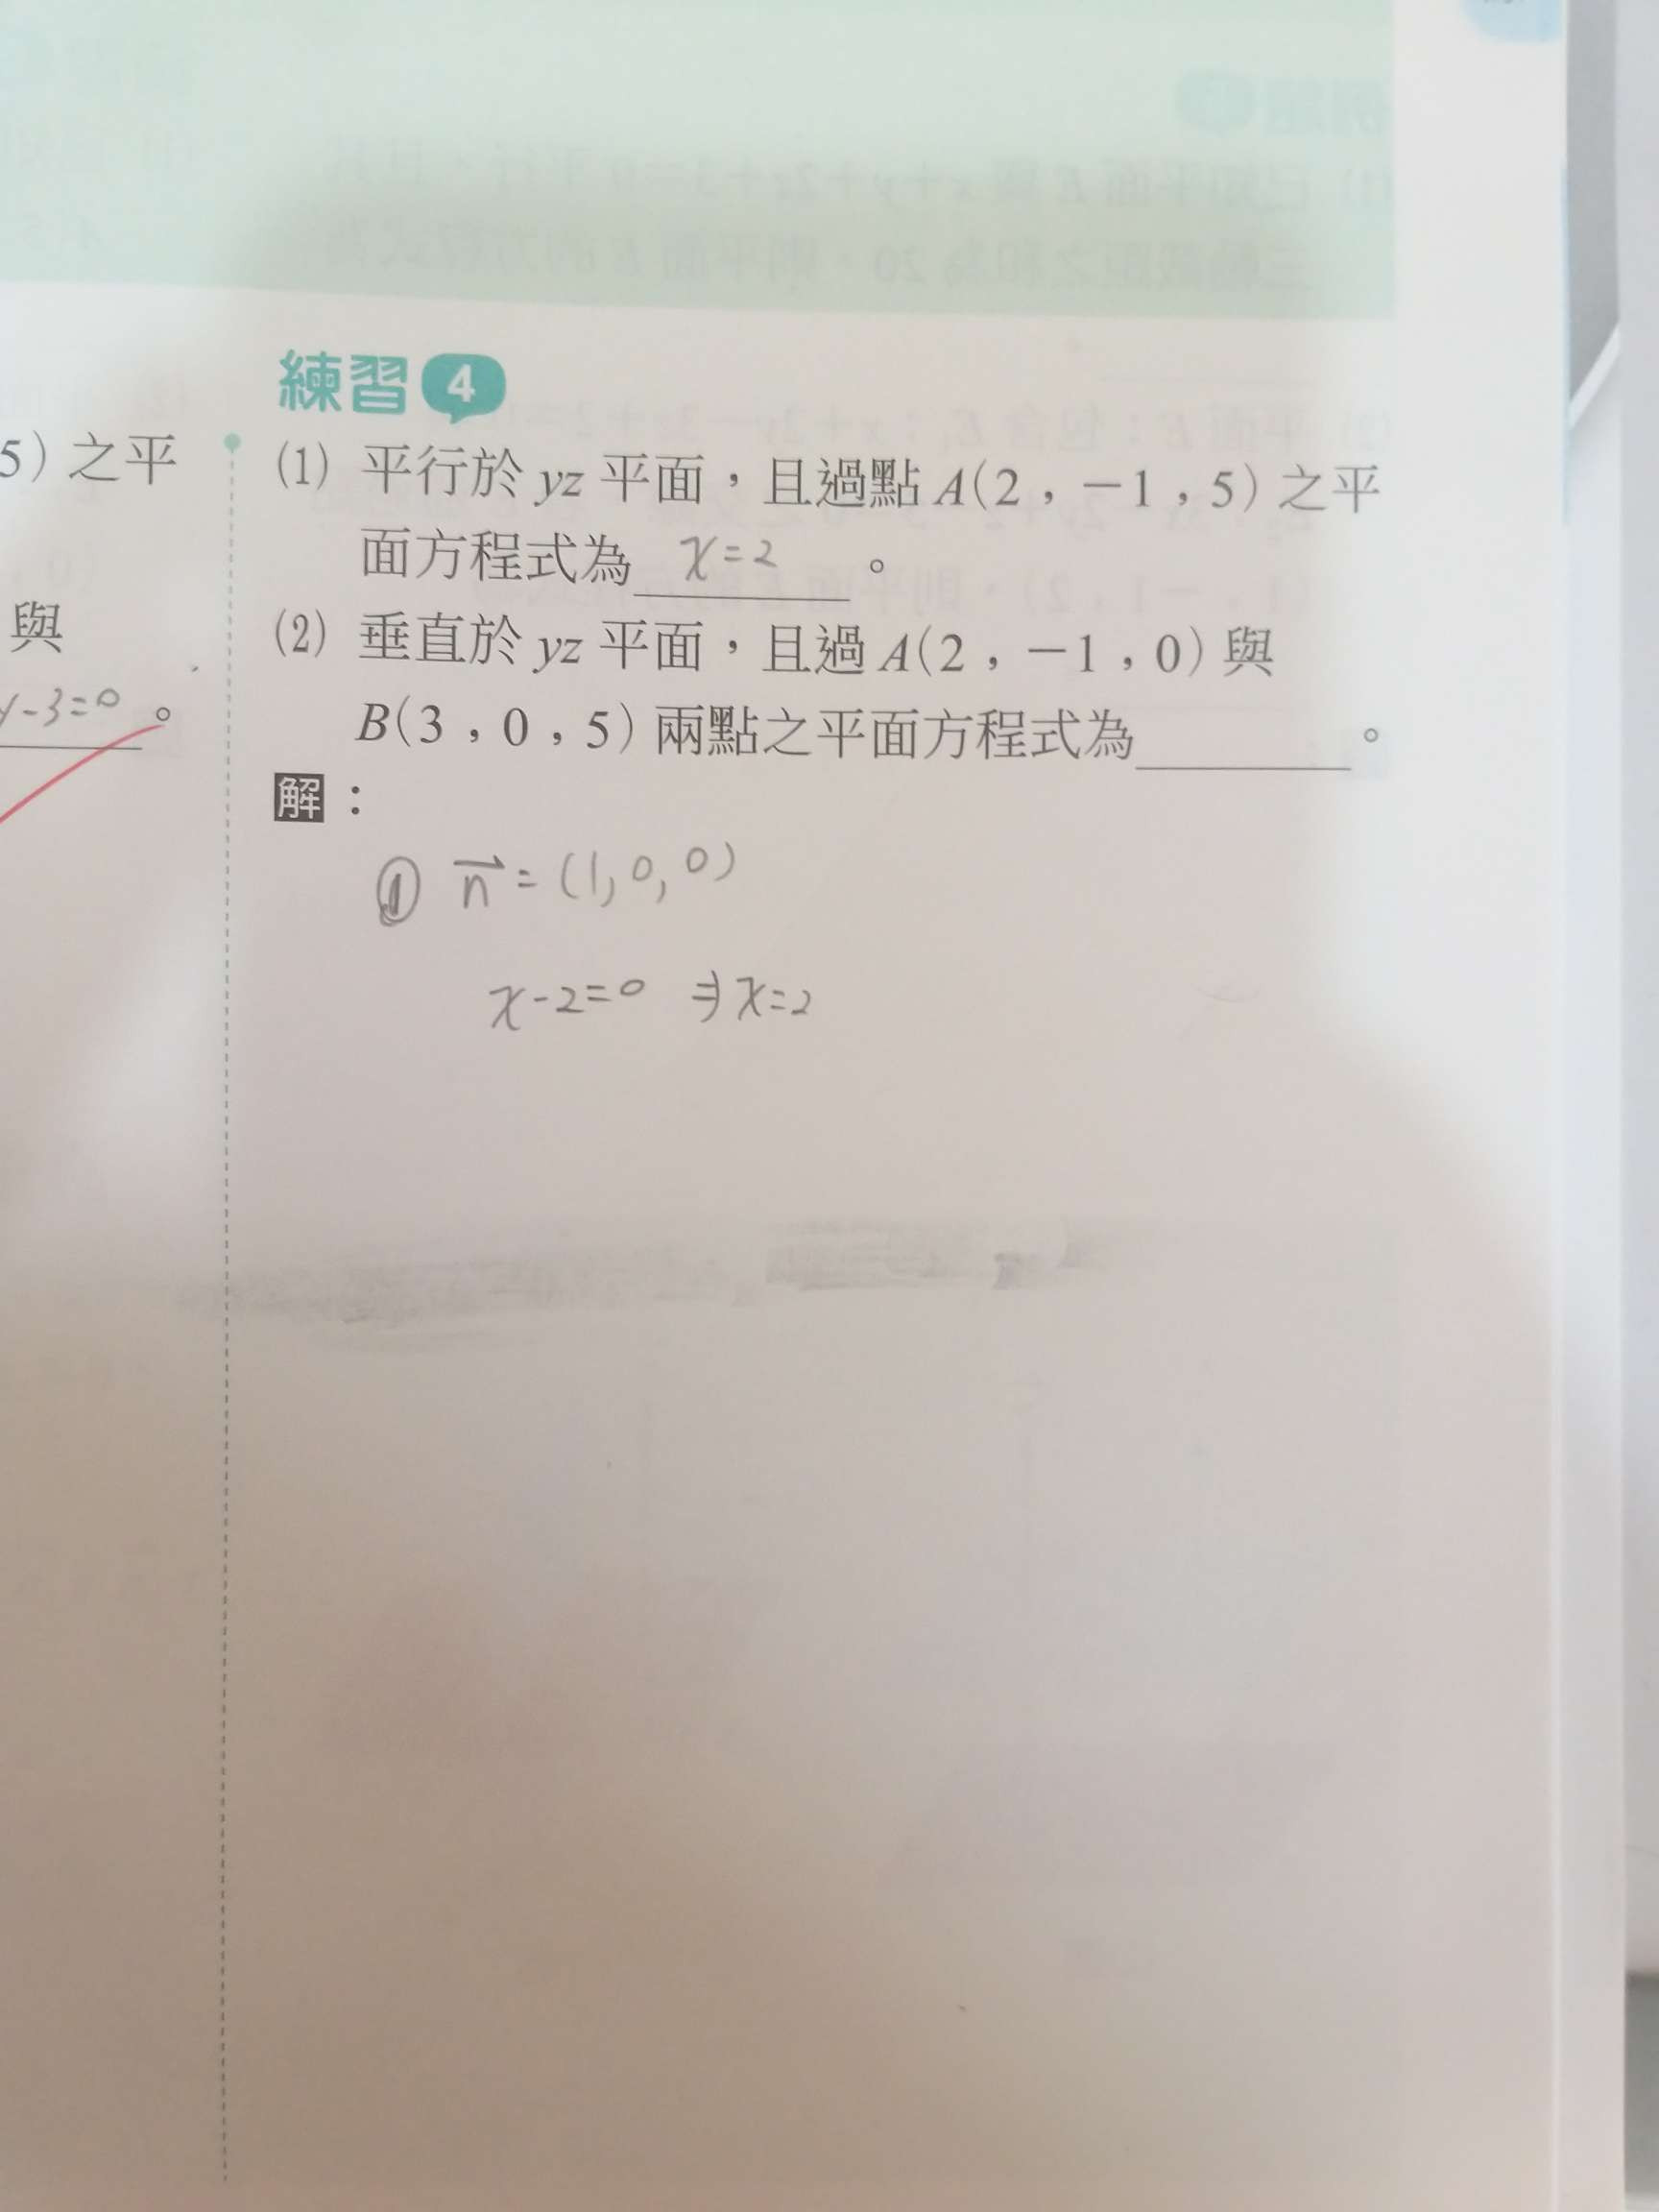 練習 4
5) 之平
(1) 平行於 yz 平面，且過點 A(2，-1，5) 之平
面方程式為 x=2 。
與
(2) 垂直於 yz 平面，且過 A(2，-1，0) 與
y-3=0 。
B(3，0，5) 兩點之平面方程式為______。
解：
① n⃗ = (1, 0, 0)
x-2=0 ⇒ x=2